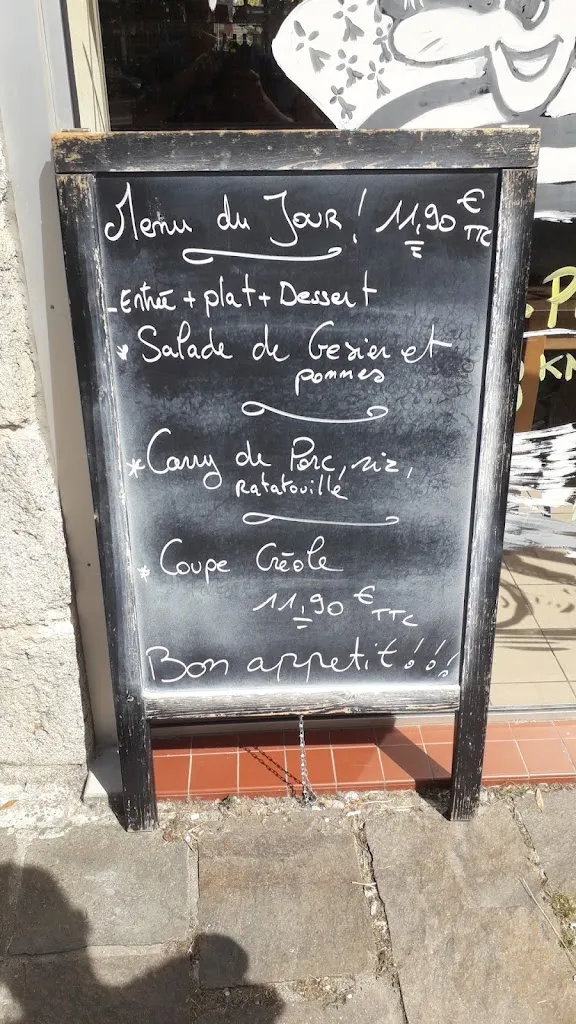 Menu du Jour ! 11,90 € TTC
- Entrée + plat + Dessert
* Salade de Gesier et
pommes
* Carry de Porc, riz,
Ratatouille
* Coupe Créole
11,90 € TTC
Bon appetit !!!